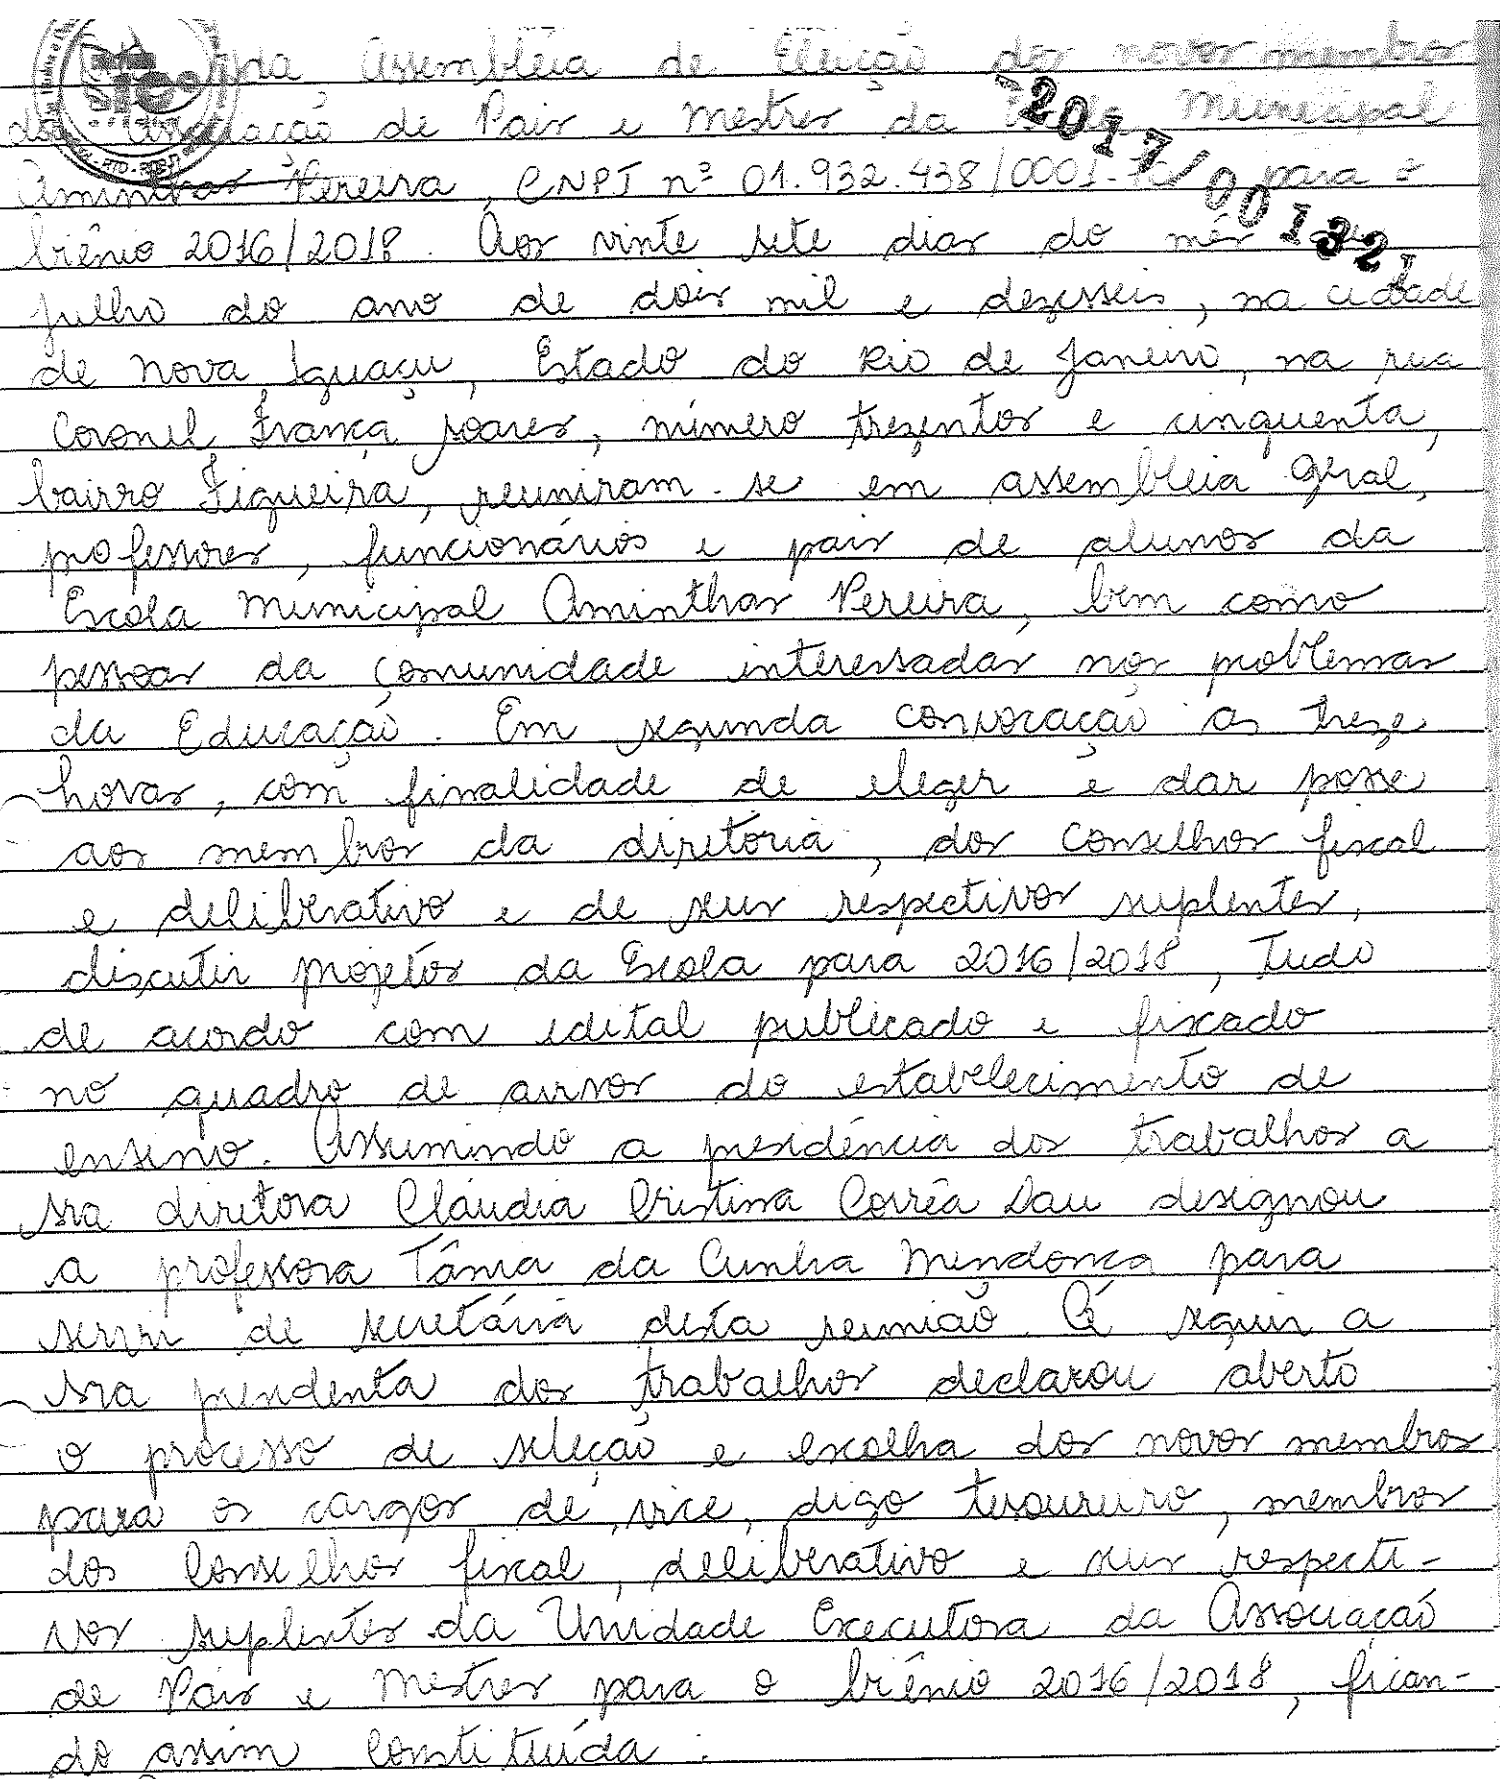 da Assembléia de Eleição dos novos membros
da Associação de Pais e Mestres da Escola Municipal
Aminthas Pereira, CNPJ nº 01.932.438/0001- para o
biênio 2016/2018. Aos vinte sete dias do mês de
julho do ano de dois mil e dezesseis, na cidade
de Nova Iguaçu, Estado do Rio de Janeiro, na rua
Coronel França Soares, número trezentos e cinquenta,
bairro Figueira, reuniram-se em assembleia geral,
professores, funcionários e pais de alunos da
Escola Municipal Aminthas Pereira, bem como
pessoas da comunidade interessadas nos problemas
da Educação. Em segunda convocação as treze
horas, com finalidade de eleger e dar posse
aos membros da diretoria, dos Conselhos fiscal
e deliberativo e de seus respectivos suplentes,
discutir projetos da Escola para 2016/2018, Tudo
de acordo com edital publicado e fixado
no quadro de avisos do estabelecimento de
ensino. Assumindo a presidência dos trabalhos a
sra diretora Cláudia Cristina Corrêa Dau designou
a professora Tânia da Cunha Mendonça para
servir de secretária desta reunião. A seguir a
sra presidenta dos trabalhos declarou aberto
o processo de seleção e escolha dos novos membros
para os cargos de, vice, digo tesoureiro, membros
dos Conselhos fiscal, deliberativo e seus respecti-
vos suplentes da Unidade Executora da Associação
de Pais e Mestres para o biênio 2016/2018, fican-
do assim constituída:
-2017/001321
RTD-RCPJ